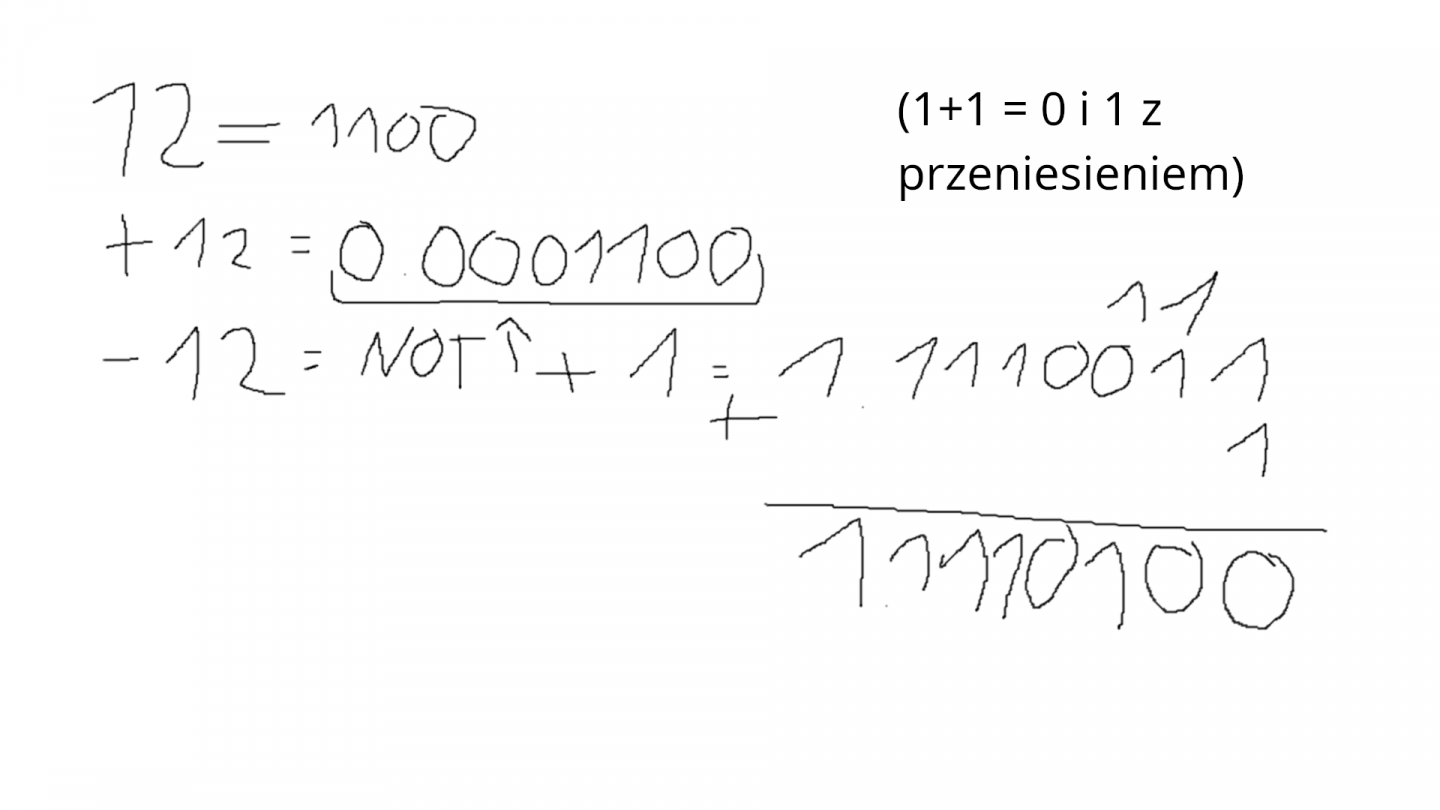 12 = 1100
(1+1 = 0 i 1 z
przeniesieniem)
+12 = 0.0001100
11
-12 = NOT↑ + 1 = 1.1110011
+ 1
1.1110100